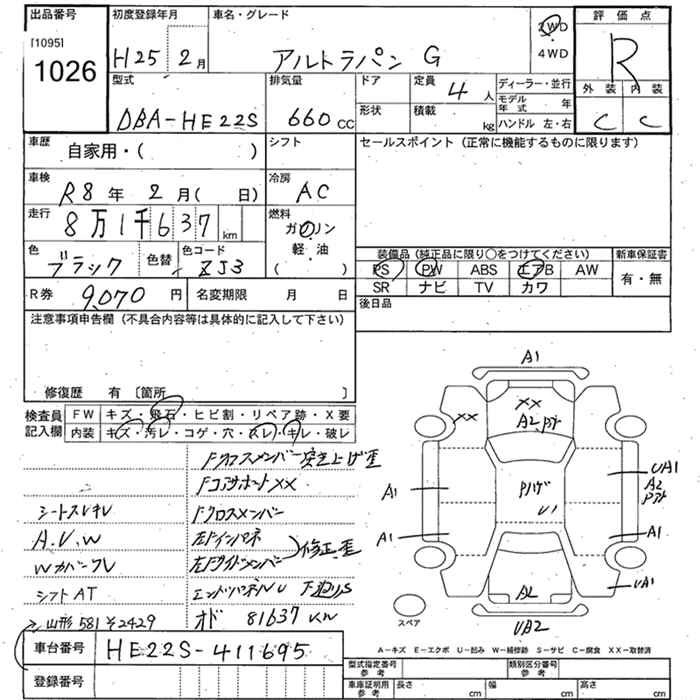 出品番号 初度登録年月 車名・グレード 評価点
[1095]
1026
H25 2月 アルトラパン G 2WD 4WD R
型式 排気量 ドア 定員 4人 ディーラー・並行 外装 内装
形状 積載 kg モデル年式 年
DBA-HE22S 660cc ハンドル 左・右 C C
車歴 自家用・( ) シフト セールスポイント（正常に機能するものに限ります）
車検 R8年 2月( 日) 冷房 AC
走行 8万1千637km 燃料 ガソリン
軽油
( )
色 ブラック 色替 色コード ZJ3 装備品（純正品に限り○をつけてください） 新車保証書
PS PW ABS エアB AW 有・無
SR ナビ TV カワ
R券 9,070円 名変期限 月 日 後日品
注意事項申告欄（不具合内容等は具体的に記入して下さい）
修復歴 有〔箇所 〕
検査員 FW キズ・飛石・ヒビ割・リペア跡・X要
記入欄 内装 キズ・汚レ・コゲ・穴・スレ・キレ・破レ
Fクロスメンバー突き上げ歪
FコアサポートXX
シートスレキレ Fクロスメンバー
A.V.W 左Fインパネ
修正歪
Wカバークレ 左Fサイドメンバー
シフトAT エンドパネルU
山形 581 そ2429 オド 81637km
車台番号 HE22S-411695
登録番号
A1
XX XX A2
UA1
A1 U1 A2
A1 A1
A2 UA1
UA2
スペア
A−キズ E−エクボ U−凹み W−補修跡 S−サビ C−腐食 XX−取替済
型式指定番号 参考 類別区分番号 参考
車庫証明用 参考 長さ cm 幅 cm 高さ cm